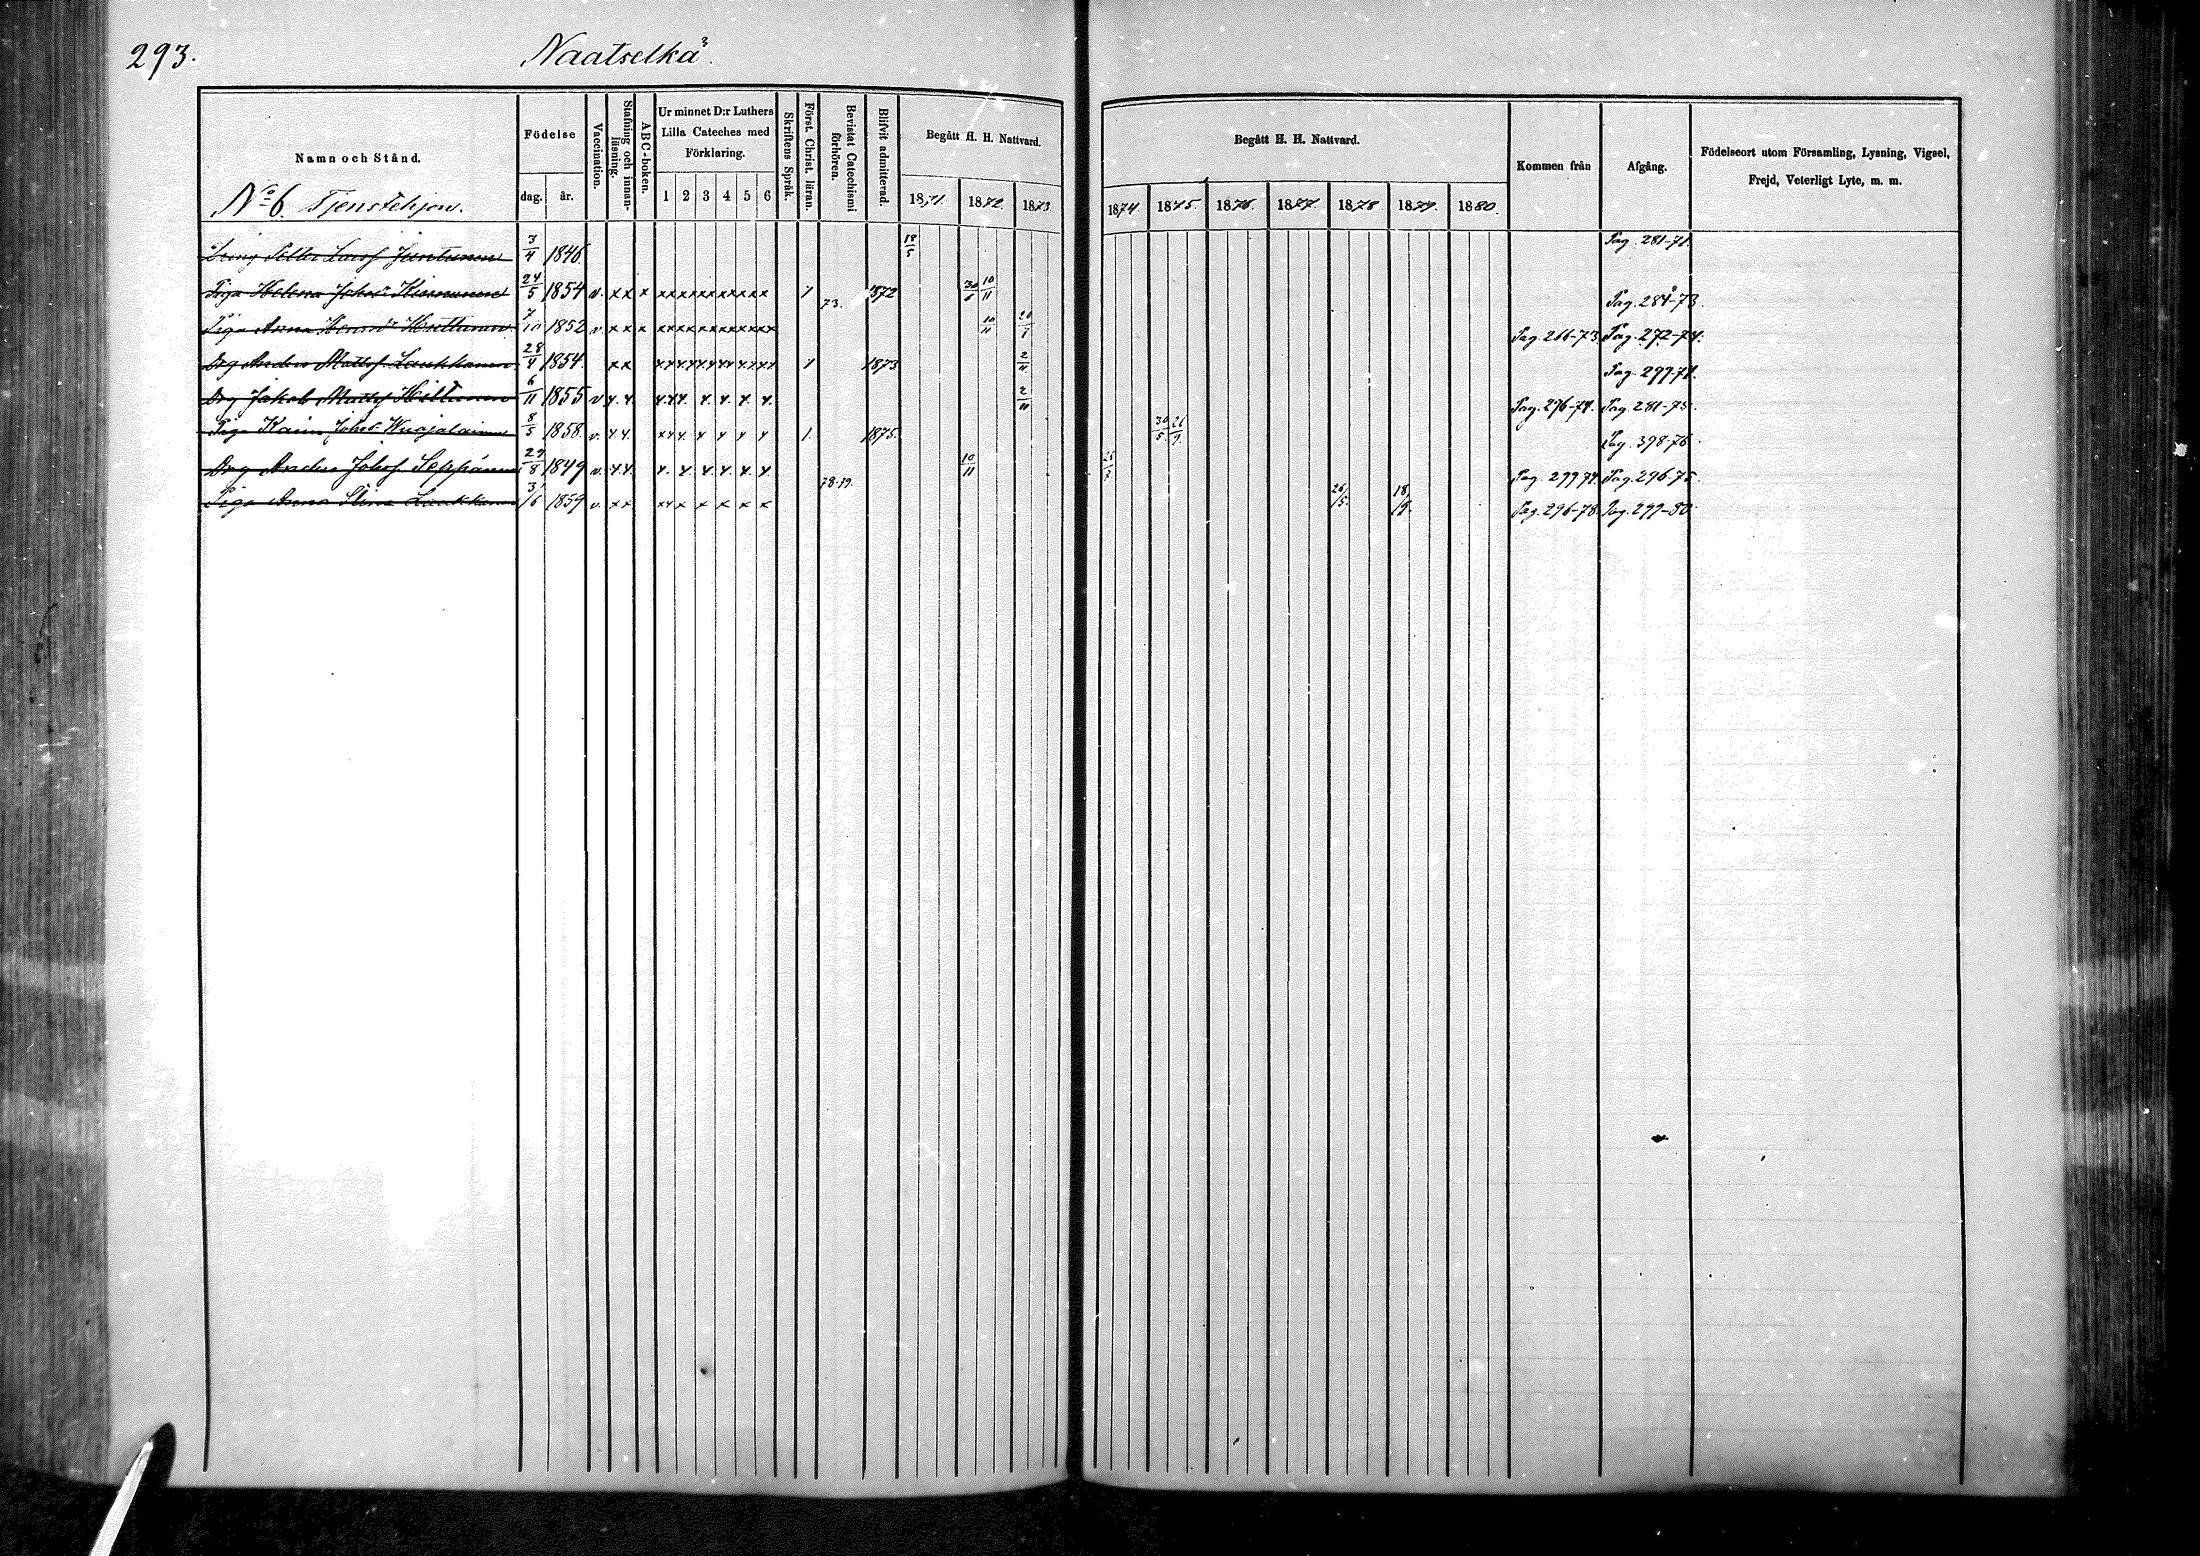 293. Naatselkä.
Namn och Stånd.
Födelse
dag. år.
Vaccination.
Stafning och innan-
läsning.
ABC-boken.
Ur minnet D:r Luthers
Lilla Cateches med
Förklaring.
1 2 3 4 5 6
Skriftens Språk.
Först. Christ. läran.
Bevistat Catechismi
förhören.
Blifvit admitterad.
Begått H. H. Nattvard.
1871. 1872. 1873
Begått H. H. Nattvard.
1874. 1875. 1876. 1877. 1878 1879. 1880.
Kommen från
Afgång.
Födelseort utom Församling, Lysning, Vigsel,
Frejd, Veterligt Lyte, m. m.
No 6. Tjenstehjon.
Dreng Petter Larsf Juntunen 3/4 1846. 18/5 Pag. 281-71.
Piga Helena Johsdr 24/5 1854 v. x x x x x x x x x x x x x x 1 73. 1872 30/6 10/11 Pag. 284-73.
Piga Anna Henrsdr Huttunen 7/10 1852 v. x x x x x x x x x x x x x x x 10/11 Pag. 266-73. Pag. 272-74.
Drg Anders Mattsf Laukkanen 28/4 1854. x x x x x x x x x x x x x x 1 1873 2/11 Pag. 299-71.
Drg Jakob Mattsf Hiltunen 6/11 1855 v x. x. x x x. x. x. x. x. 2/11 Pag. 276-74. Pag. 281-75.
Piga Johsdr 8/5 1858. v. x x. x x x. x x x x 1. 1875. 30/5 26/9 Pag. 398-76.
Drg Anders Johsf Seppänen 29/8 1849 v. x. x. x. x. x. x. x. x. 10/11 Pag. 299 74. Pag. 296-75.
Piga Anna Stina Laukkanen 3/6 1859 v. x x x x x x x x x 78-79. 26/5. 18/9. Pag. 296-78. Pag. 299-80.